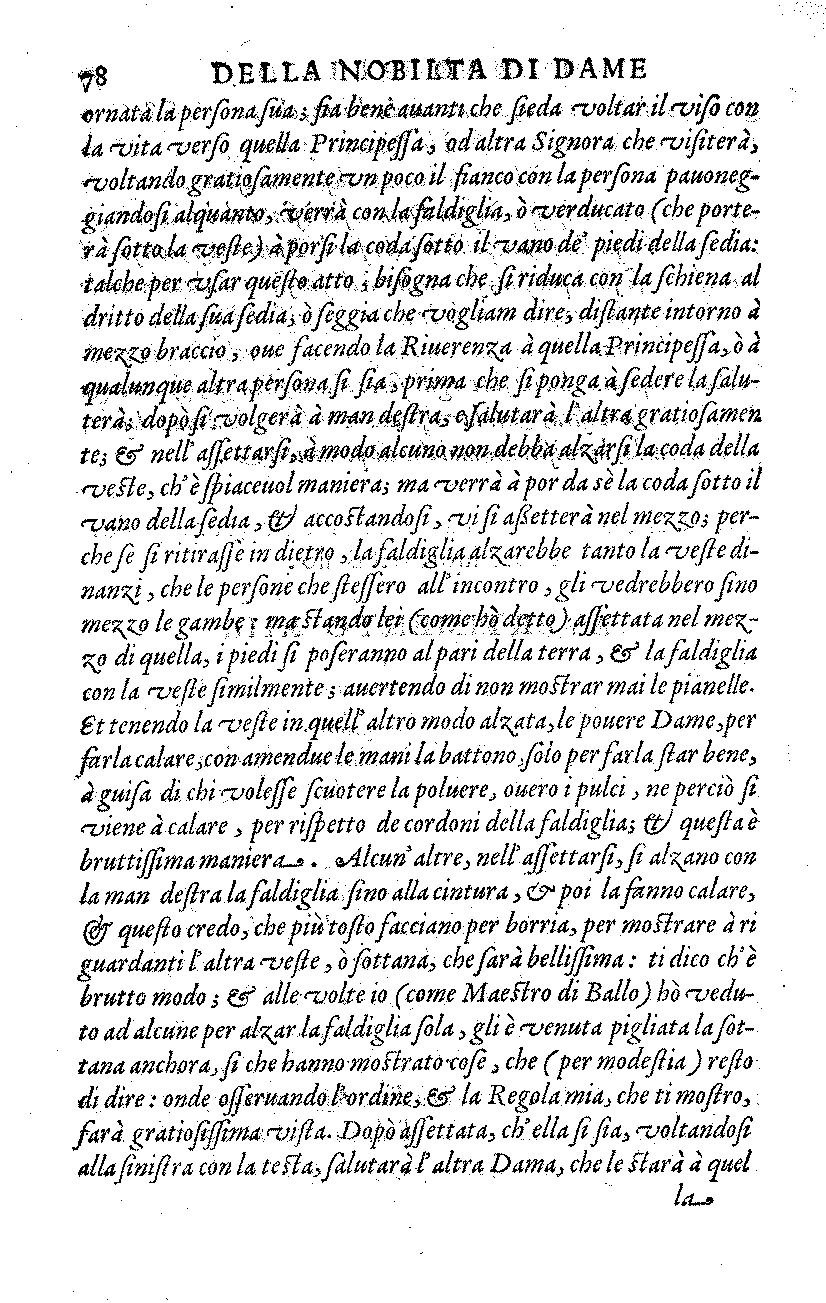 78 DELLA NOBILTA DI DAME
ornata la perſona ſua; ſia bene auanti che ſieda voltar il viſo con
la vita verſo quella Principeſſa, od altra Signora che viſiterà,
voltando gratioſamente vn poco il fianco con la perſona pauoneg-
giandoſi alquanto, verrà con la faldiglia, ò verducato (che porte-
rà ſotto la veſte) à porſi la coda ſotto il vano de' piedi della ſedia:
talche per vſar queſto atto, biſogna che ſi riduca con la ſchiena al
dritto della ſua ſedia, ò ſeggia che vogliam dire, diſtante intorno à
mezzo braccio, oue facendo la Riuerenza à quella Principeſſa, ò à
qualunque altra perſona ſi ſia, prima che ſi ponga à ſedere la ſalu-
terà; dopò ſi volgerà à man deſtra, e ſalutarà l'altra gratioſamen
te; & nell'aſſettarſi, à modo alcuno non debba alzarſi la coda della
veſte, ch'è ſpiaceuol maniera; ma verrà à por da sè la coda ſotto il
vano della ſedia, & accoſtandoſi, vi ſi aßetterà nel mezzo; per-
che ſe ſi ritiraſſe in dietro, la faldiglia alzarebbe tanto la veſte di-
nanzi, che le perſone che ſteſſero all'incontro, gli vedrebbero ſino
mezzo le gambe: ma ſtando lei (come hò detto) aſſettata nel mez-
zo di quella, i piedi ſi poſeranno al pari della terra, & la faldiglia
con la veſte ſimilmente; auertendo di non moſtrar mai le pianelle.
Et tenendo la veſte in quell'altro modo alzata, le pouere Dame, per
farla calare, con amendue le mani la battono, ſolo per farla ſtar bene,
à guiſa di chi voleſſe ſcuotere la poluere, ouero i pulci, ne perciò ſi
viene à calare, per riſpetto de cordoni della faldiglia; & queſta è
bruttiſſima maniera. Alcun'altre, nell'aſſettarſi, ſi alzano con
la man deſtra la faldiglia ſino alla cintura, & poi la fanno calare,
& queſto credo, che più toſto facciano per borria, per moſtrare à ri
guardanti l'altra veſte, ò ſottana, che ſarà belliſſima: ti dico ch'è
brutto modo; & alle volte io (come Maeſtro di Ballo) hò vedu-
to ad alcune per alzar la faldiglia ſola, gli è venuta pigliata la ſot-
tana anchora, ſi che hanno moſtrato coſe, che (per modeſtia) reſto
di dire: onde oſſeruando l'ordine, & la Regola mia, che ti moſtro,
farà gratioſiſſima viſta. Dopò aſſettata, ch'ella ſi ſia, voltandoſi
alla ſiniſtra con la teſta, ſalutarà l'altra Dama, che le ſtarà à quel
la